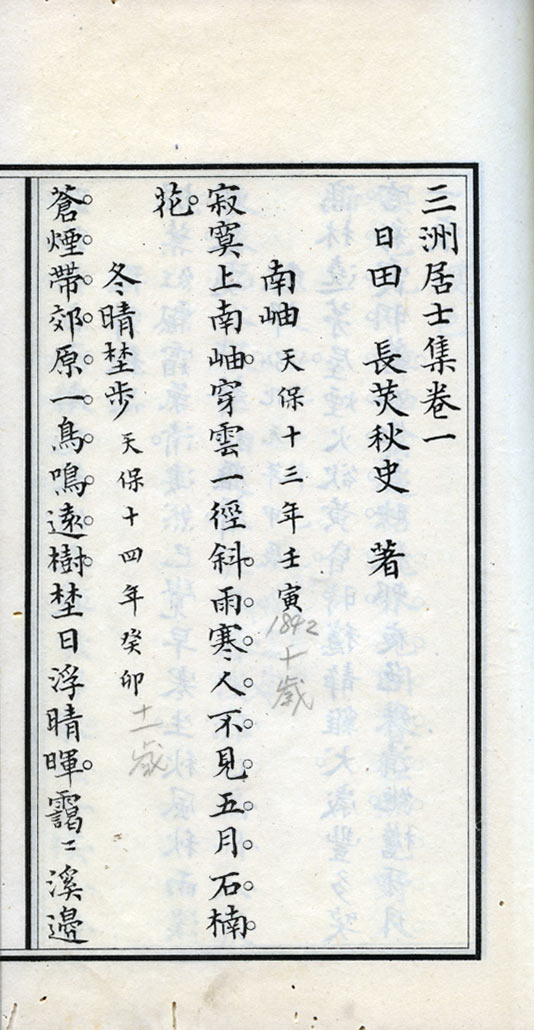 三洲居士集卷一
日田 長茭秋史 著
南岫 天保十三年壬寅
1842
十歳
寂寞上南岫穿雲一徑斜雨寒人不見五月石楠
花
冬晴埜步 天保十四年癸卯
十一歳
蒼煙帶郊原一鳥鳴遠樹埜日浮晴暉靄〻溪邊